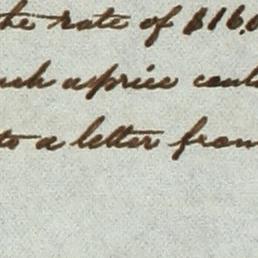 the rate of $16.0
such a price could
to a letter from